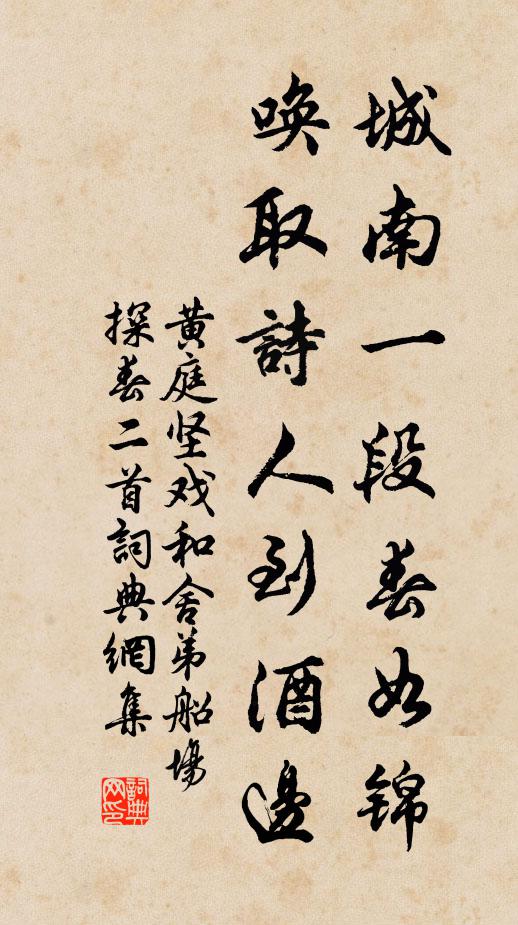 城南一段春如锦
唤取詩人到酒邊
黄庭坚戏和舍弟船場
探春二首詞典網集
詞典
网印